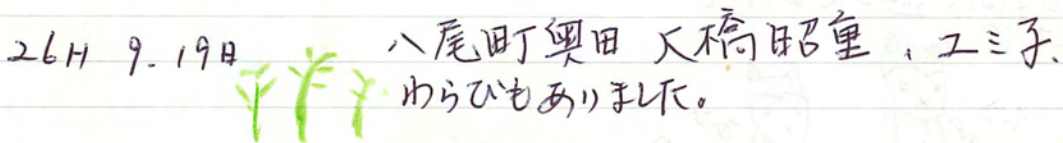 26H 9.19日 八尾町奥田 大橋昭重、ユミ子、
わらびもありました。